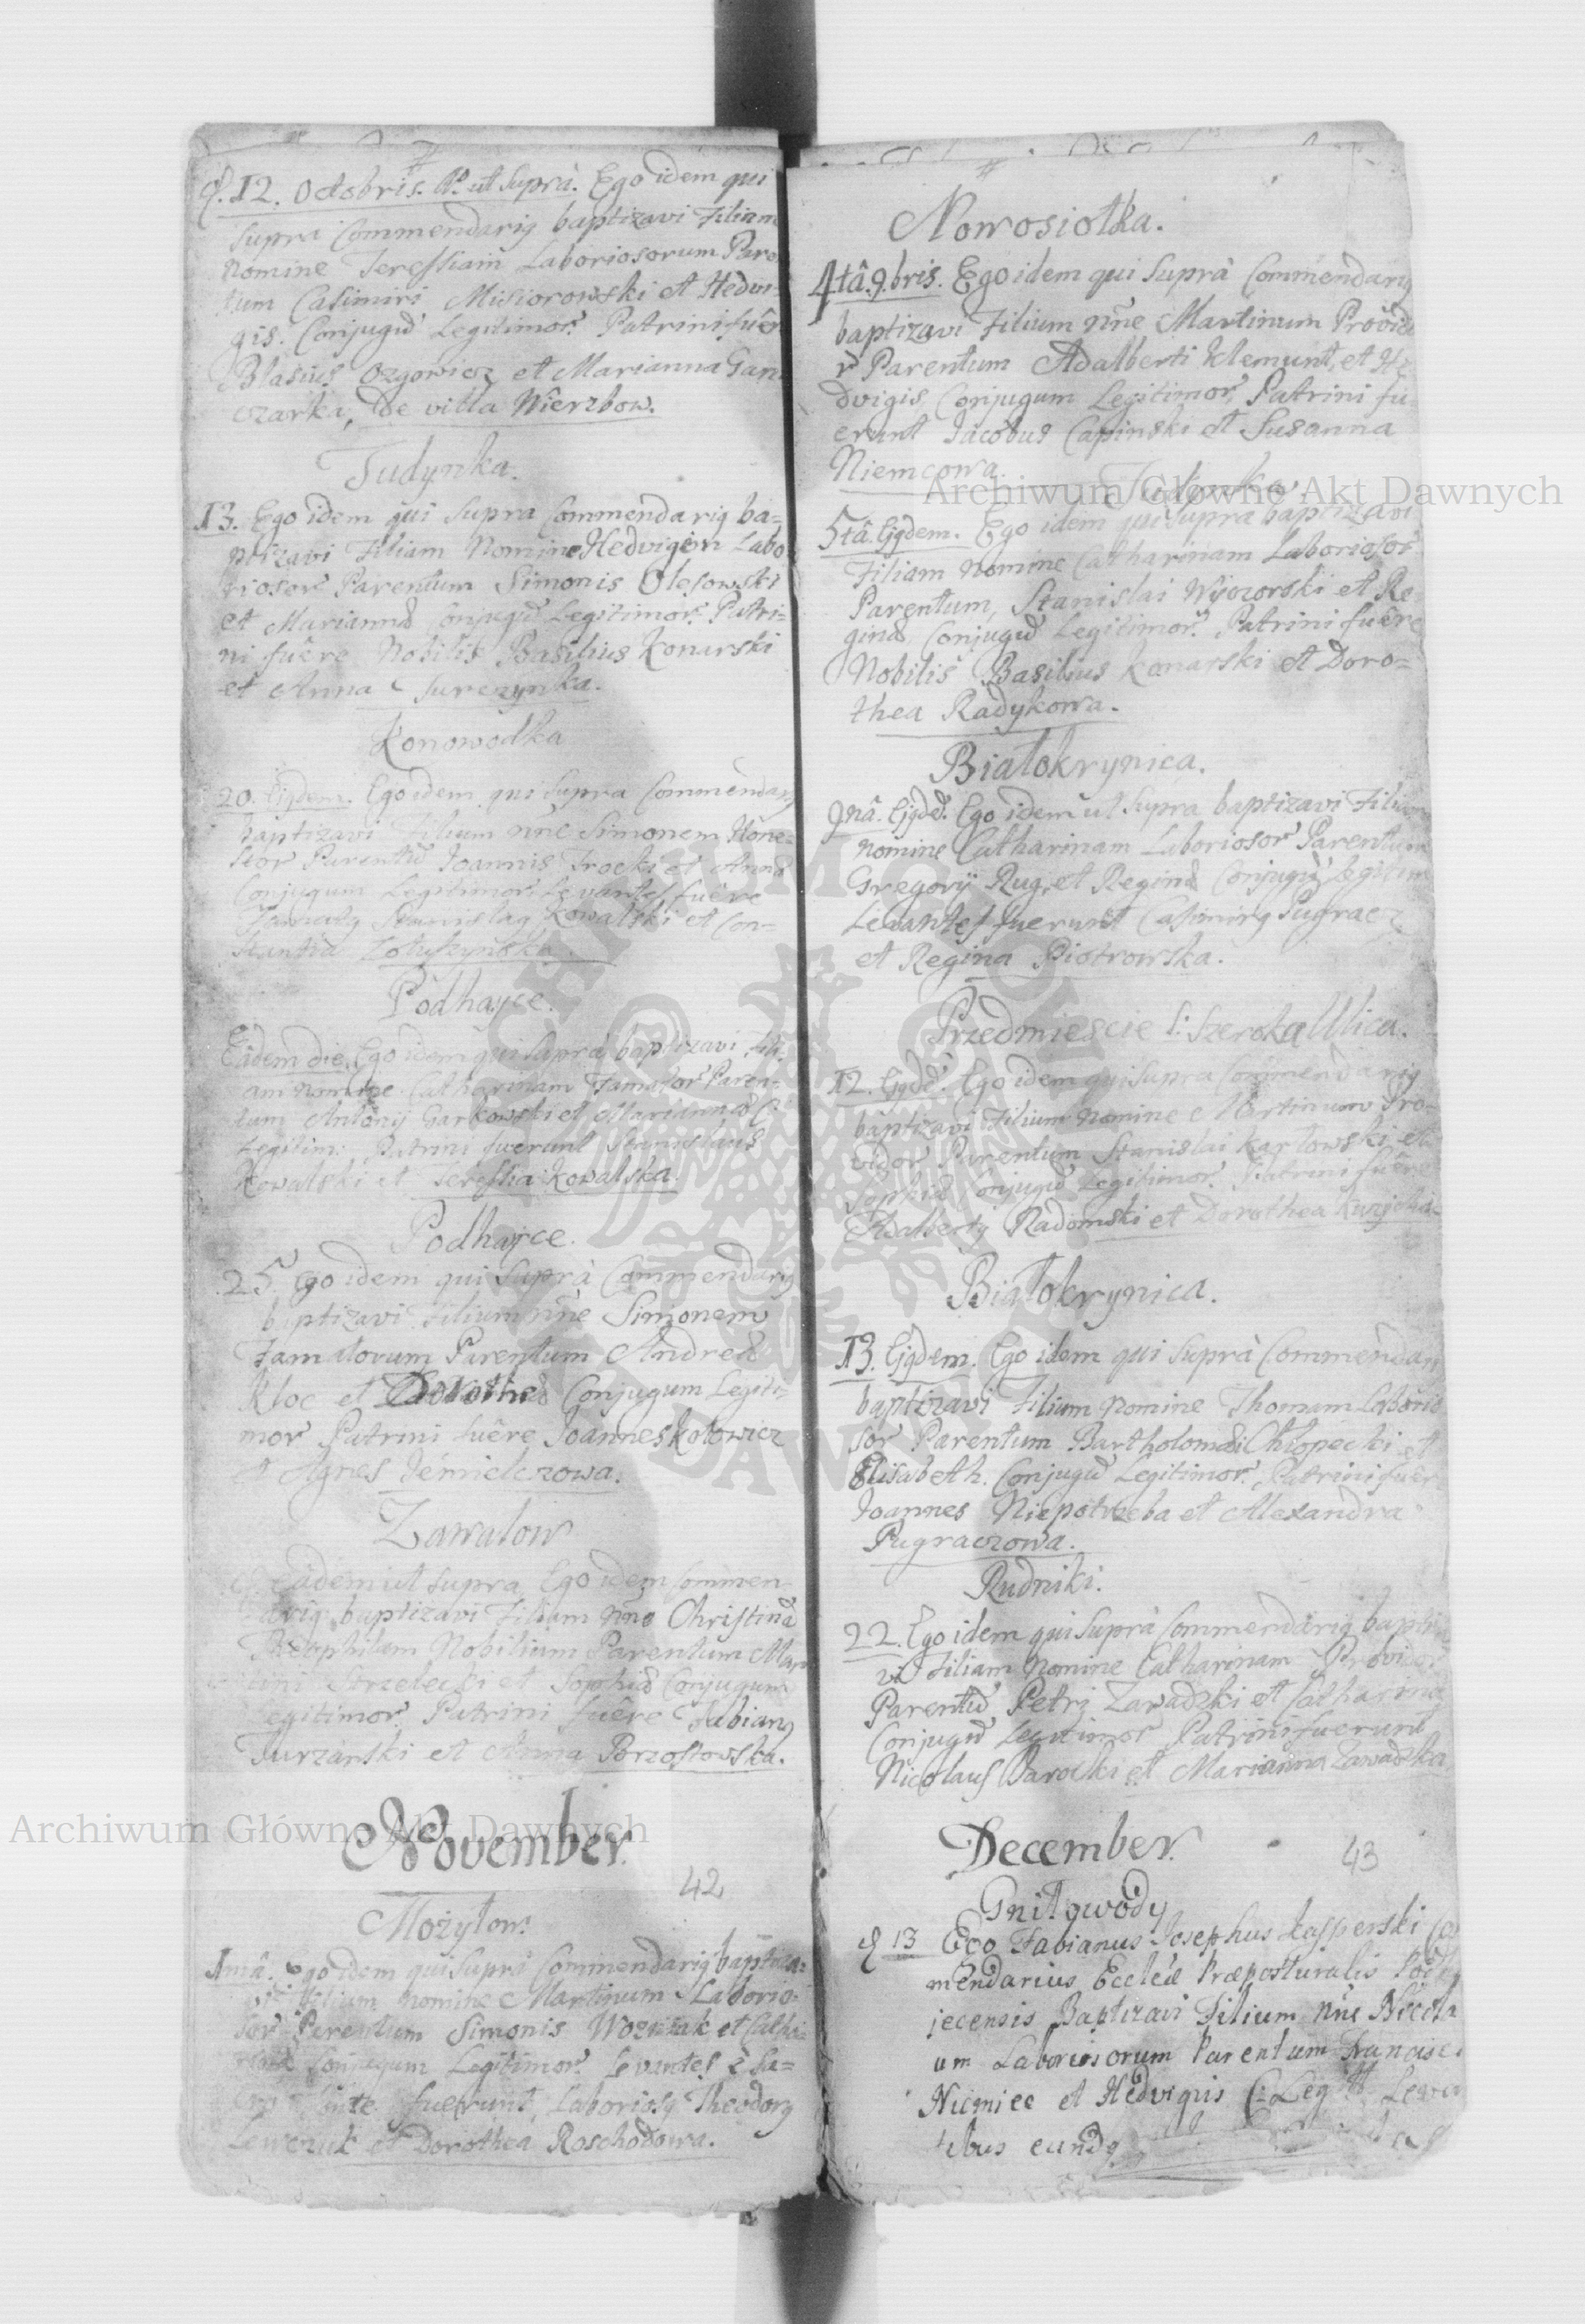 12. Octobris. Ao. ut Suprà. Ego idem qui
Supra Commendarig baptizavi Filiam
nomine Teressiam Laboriosorum Paren
tum Casimiri Misiorowski et Hedvi-
gis. Conjugū Legitimor. Patrini fuêre
Blasius Ozgowicz et Marianna Gan
czarka, de villa Wierzbow.
Tudynka.
13. Ego idem qui Supra Commendarig ba=
ptizavi Filiam Nomine Hedvigem Labo
riosor Parentum Simonis Olesowski
et Mariannæ Conjugū Legitimor. Patri=
ni fuêre Nobilis Basilius Konarski
et Anna Surczynka.
Konowodka
20. Ejgdem. Ego idem qui Supra Commendarig
baptizavi Filium nñe Simonem Hone=
stor Parentū Joannis Trocki et Annæ
Conjugum Legitimor Levantes fuêre
Famatg Stanislag Kowalski et Con=
stantia
Podhayce.
Eâdem die. Ego idem qui Suprà baptizavi Fili-
am nomine Catharinam Famator Paren-
tum Antonij Garkowski et Mariannæ C:
Legitim: Patrini fuerunt Stanislaus
Kowalski et Teressia Kowalska.
Podhayce.
25. Ego idem qui Suprà Commendarig
baptizavi Filium nñe Simonem
Famatorum Parentum Andreæ
Kloc et Dorotheæ Conjugum Legiti=
mor Patrini fuêre Joannes Kotowicz
et Agnes Jemielczowa.
Zawalow
Eâdem ut supra Ego idem Commen
darig baptizavi Filiam nñe Christinā
Theophilam Nobilium Parentum Mar
tini Strzelecki et Sophiæ Conjugum
Legitimor. Patrini fuêre Fabiang
Turzanski et Anna Porzostowska.
November.
42
Możyłow.
1mâ. Ego idem qui Suprà Commendarig baptiza=
vi Filium nomine Martinum Laborio=
sor Parentum Simonis Wozniak et Catha
rinæ Conjugum Legitimor. Levantes è Sa=
cro fonte fuerunt, Laboriosg Theodorg
Lewczuk et Dorothea Roschodowa.
Nowosiołka.
4tâ. 9.bris. Ego idem qui Suprà Commendarig
baptizavi Filium nñe Martinum Provido
r Parentum Adalberti Klemunt, et He
dvigis Conjugum Legitimor, Patrini fu=
erunt Jacobus Capinski et Susanna
Niemcowa.
Tudynka.
5tâ. Ejgdem. Ego idem qui Supra baptizavi
Filiam nomine Catharinam Laboriosor
Parentum, Stanislai Wysozorski et Re
ginæ Conjugū Legitimor. Patrini fuêre
Nobilis Basilius Konarski et Doro=
thea Radykowa.
Białokrynica.
9nâ. Ejgdē. Ego idem ut Supra baptizavi Filiam
nomine Catharinam Laboriosor Parentum
Gregorij Rug, et Reginæ Conjugū Legitim
Levantes fuerunt Casimirg Pugracz
et Regina Piotrowska.
Przedmiescie S: Szeroka Ulica.
12. Ejgdē. Ego idem qui Supra Commendarig
baptizavi Filium nomine Martinum Pro=
vidor Parentum Stanislai Karłowski et
Sophiæ Conjugū Legitimor. Patrini fuêre
Adalbertg Radomski et Dorothea
Białokrynica.
13. Ejgdem. Ego idem qui Suprà Commendarig
baptizavi Filium nomine Thomam Laborio
sor Parentum Bartholomæi Chłopecki et
Elisabeth. Conjugū Legitimor. Patrini fuêr
Joannes Niepotrzeba et Alexandra
Pugraczowa.
Rudniki.
22. Ego idem qui Suprà Commendarig baptiza
vi Filiam nomine Catharinam Providor
Parentū Petri Zawadzki et Catharinæ
Conjugū Legitimor Patrini fuerunt
Nicolaus Barocki et Marianna Zawadzka
December.
43
Gniłowody
13 Ego Fabianus Josephus Kasperski Co
mendarius Eccleæ Præposturalis Podha
jecensis Baptizavi Filium nñe Nicola
um Laboriosorum Parentum Francisci
Niemiec et Hedvigis C: Legitt. Levan
tibus eundg
Archiwum Główne Akt Dawnych
Archiwum Główne Akt Dawnych
ARCHIWUM GŁÓWNE AKT DAWNYCH